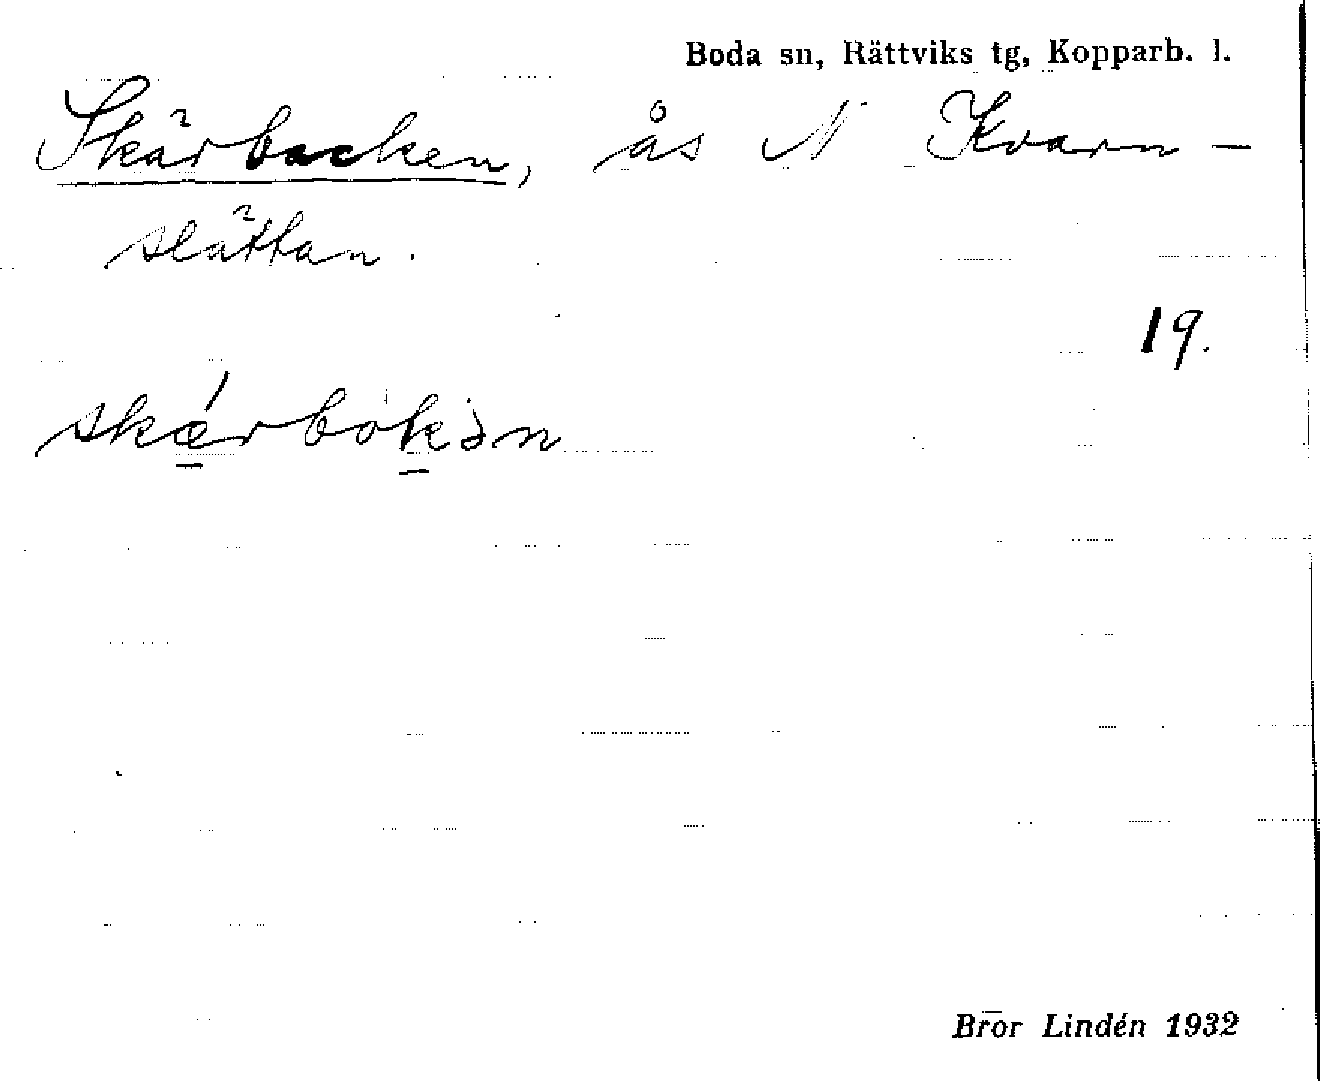 Boda sn, Rättviks tg, Kopparb. l.
Skärbacken, ås N Kvarn-
slättan.
19.
skǽrbòkən
Bror Lindén 1932